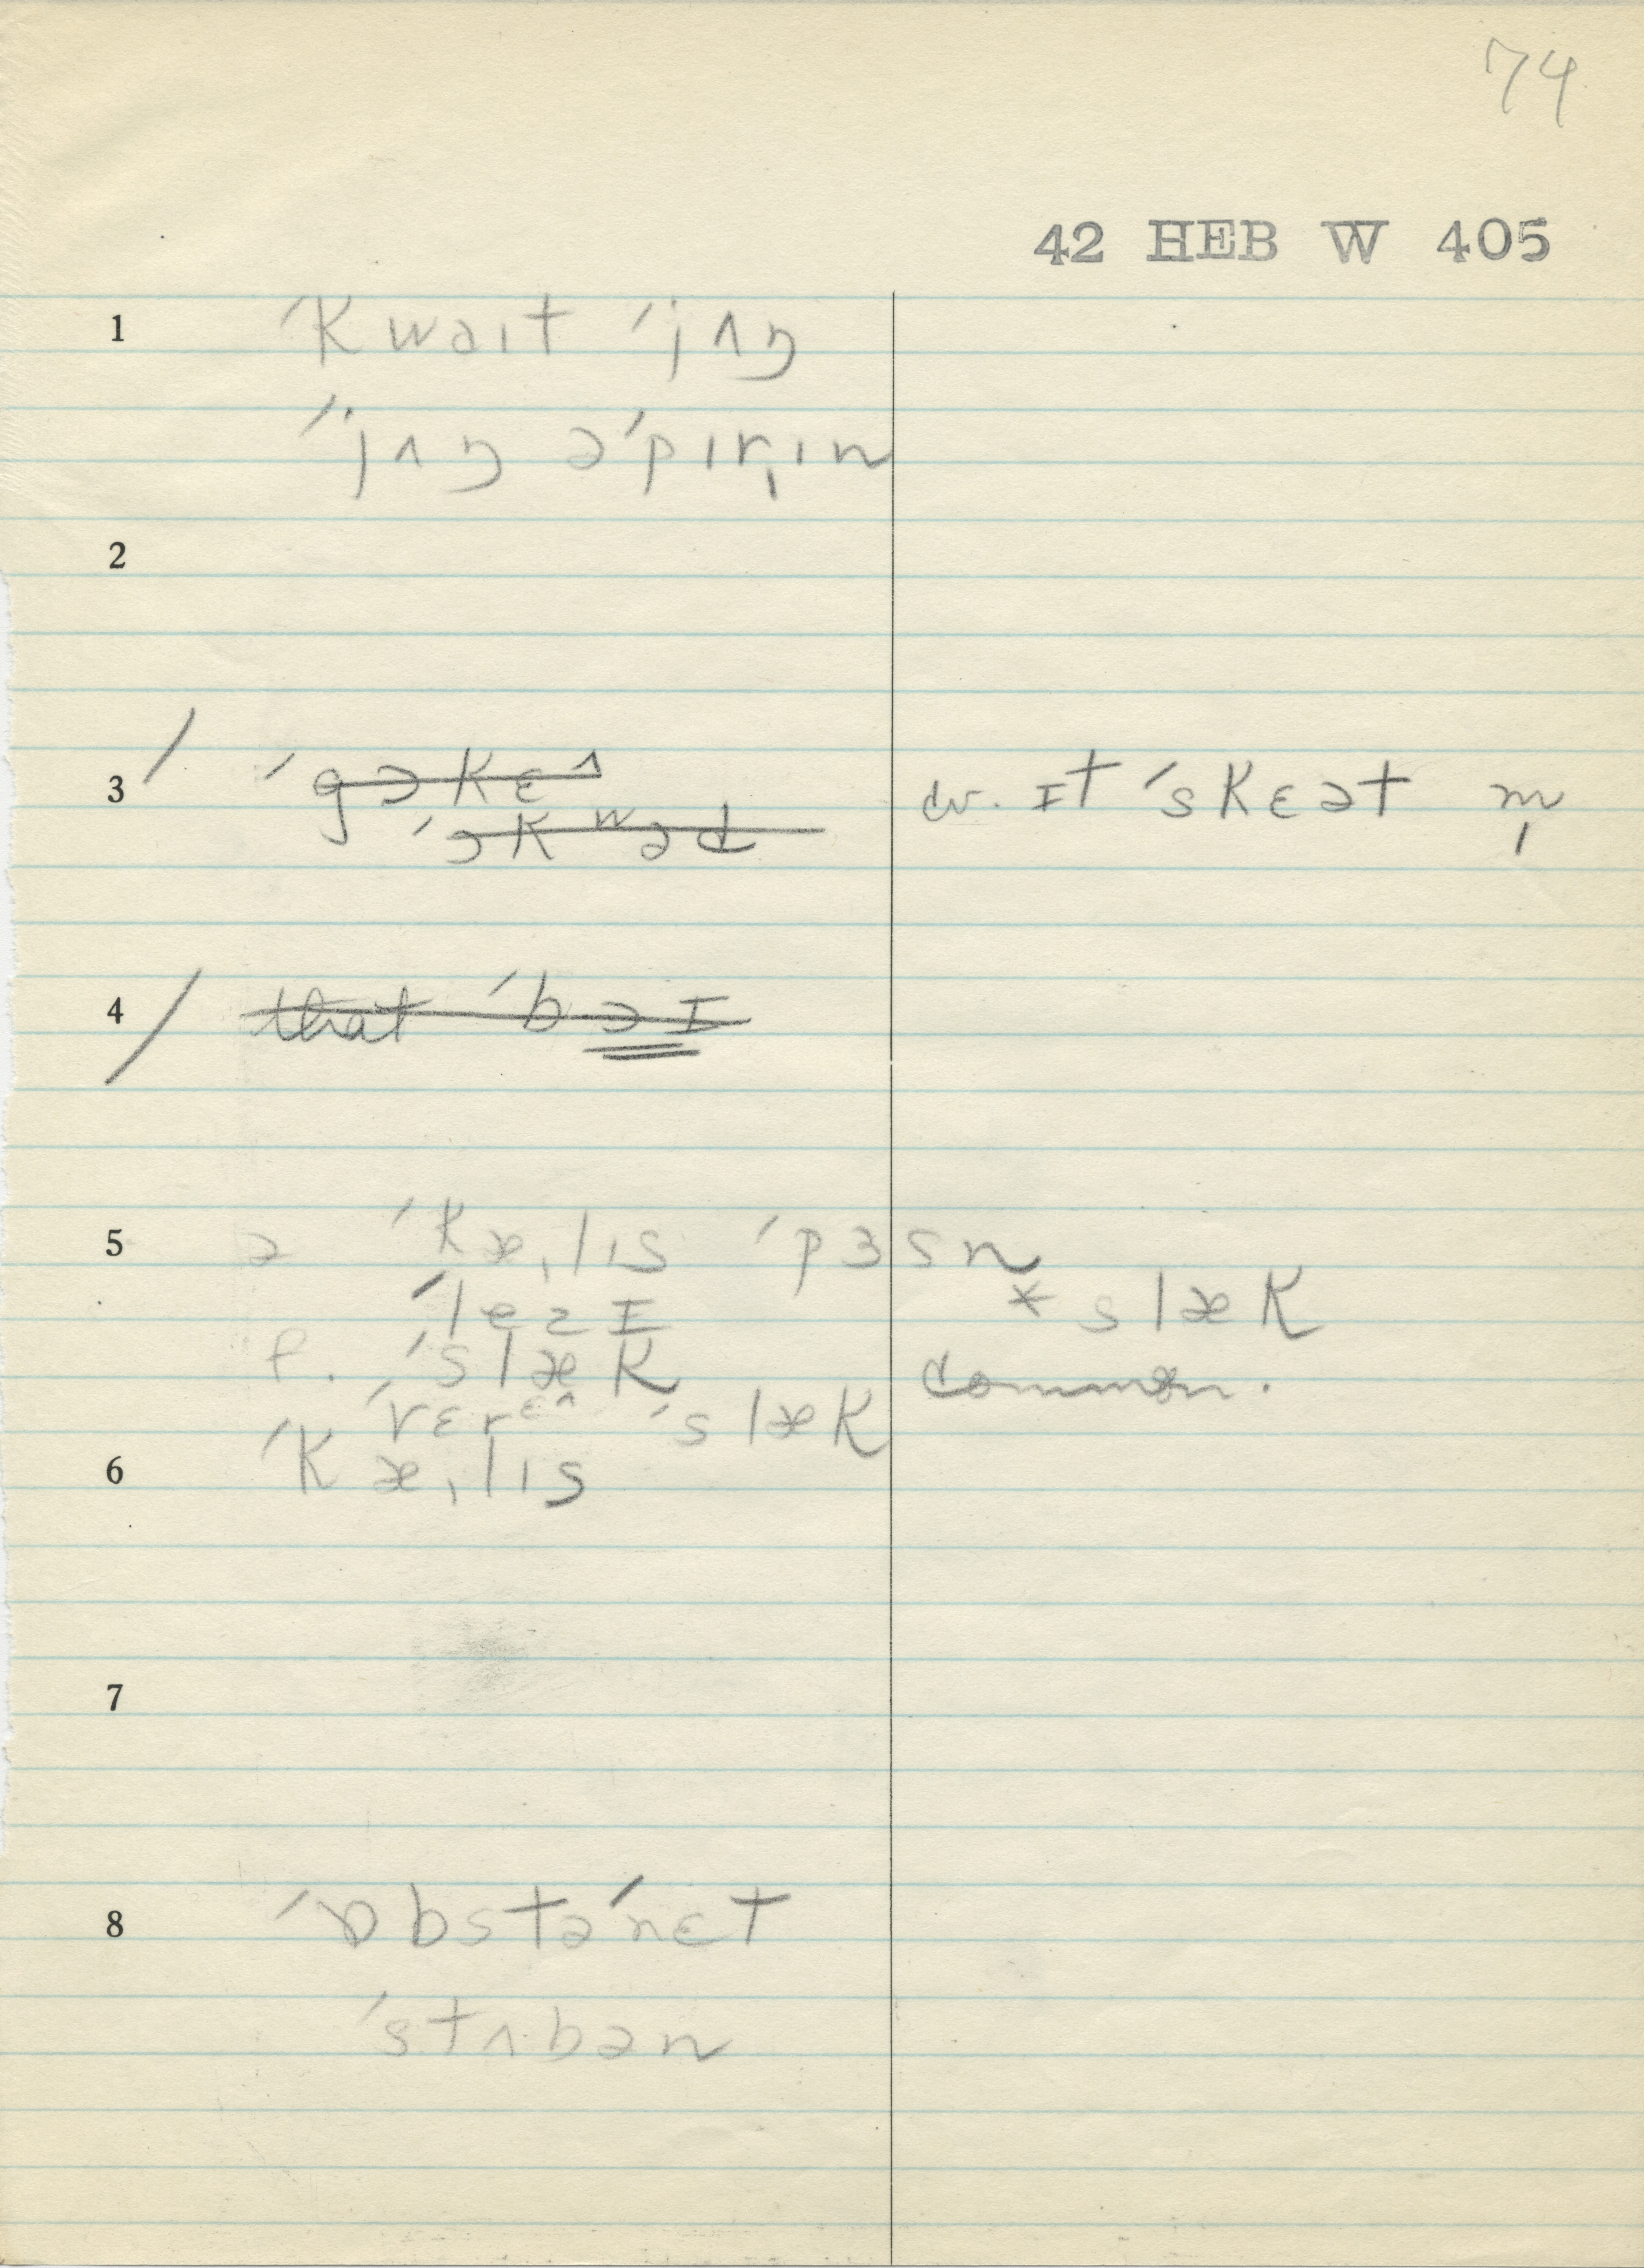 74
42 HEB W 405
1 ˈkwaɪt ˈjʌŋ
ˈjʌŋ əˈpɪr̩ɪn
2
3 ˈgɔkɛ^ cv. ɪt ˈskɛət m̩
ˈɔkwəd
4 that ˈbɔɪ
5 ə ˈkæˌlɪs ˈpɜsn
ˈlezɪ * slæk
f. ˈslæk common.
ˈvɛrɛ^ ˈslæk
6 ˈkæˌlɪs
7
8 ˈɒbstəˈnɛt
ˈstʌbən